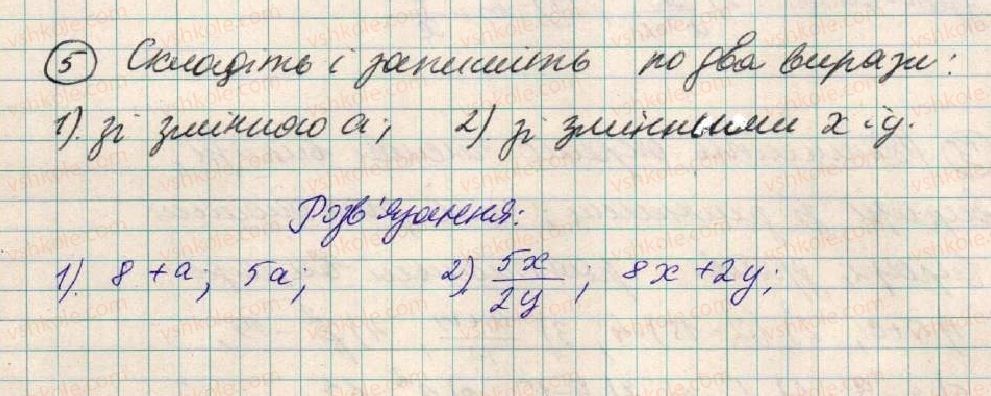 5 Складіть і запишіть по два вирази:
1). зі змінною a; 2) зі змінными x і y.
Розв'язання:
1). 8 + a; 5a; 2) 5x/2y; 8x + 2y;